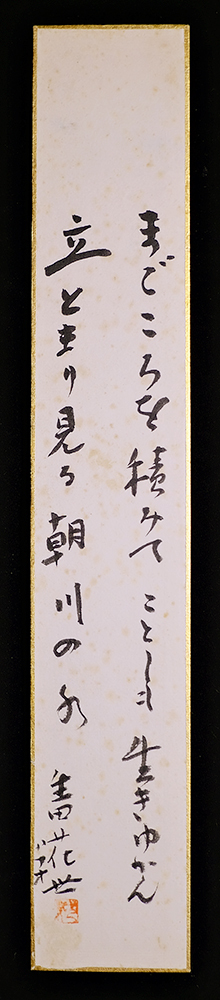 まごころを積みてことしも生きゆかん
立とまり見る朝川の水
生田花世
ハナヨ